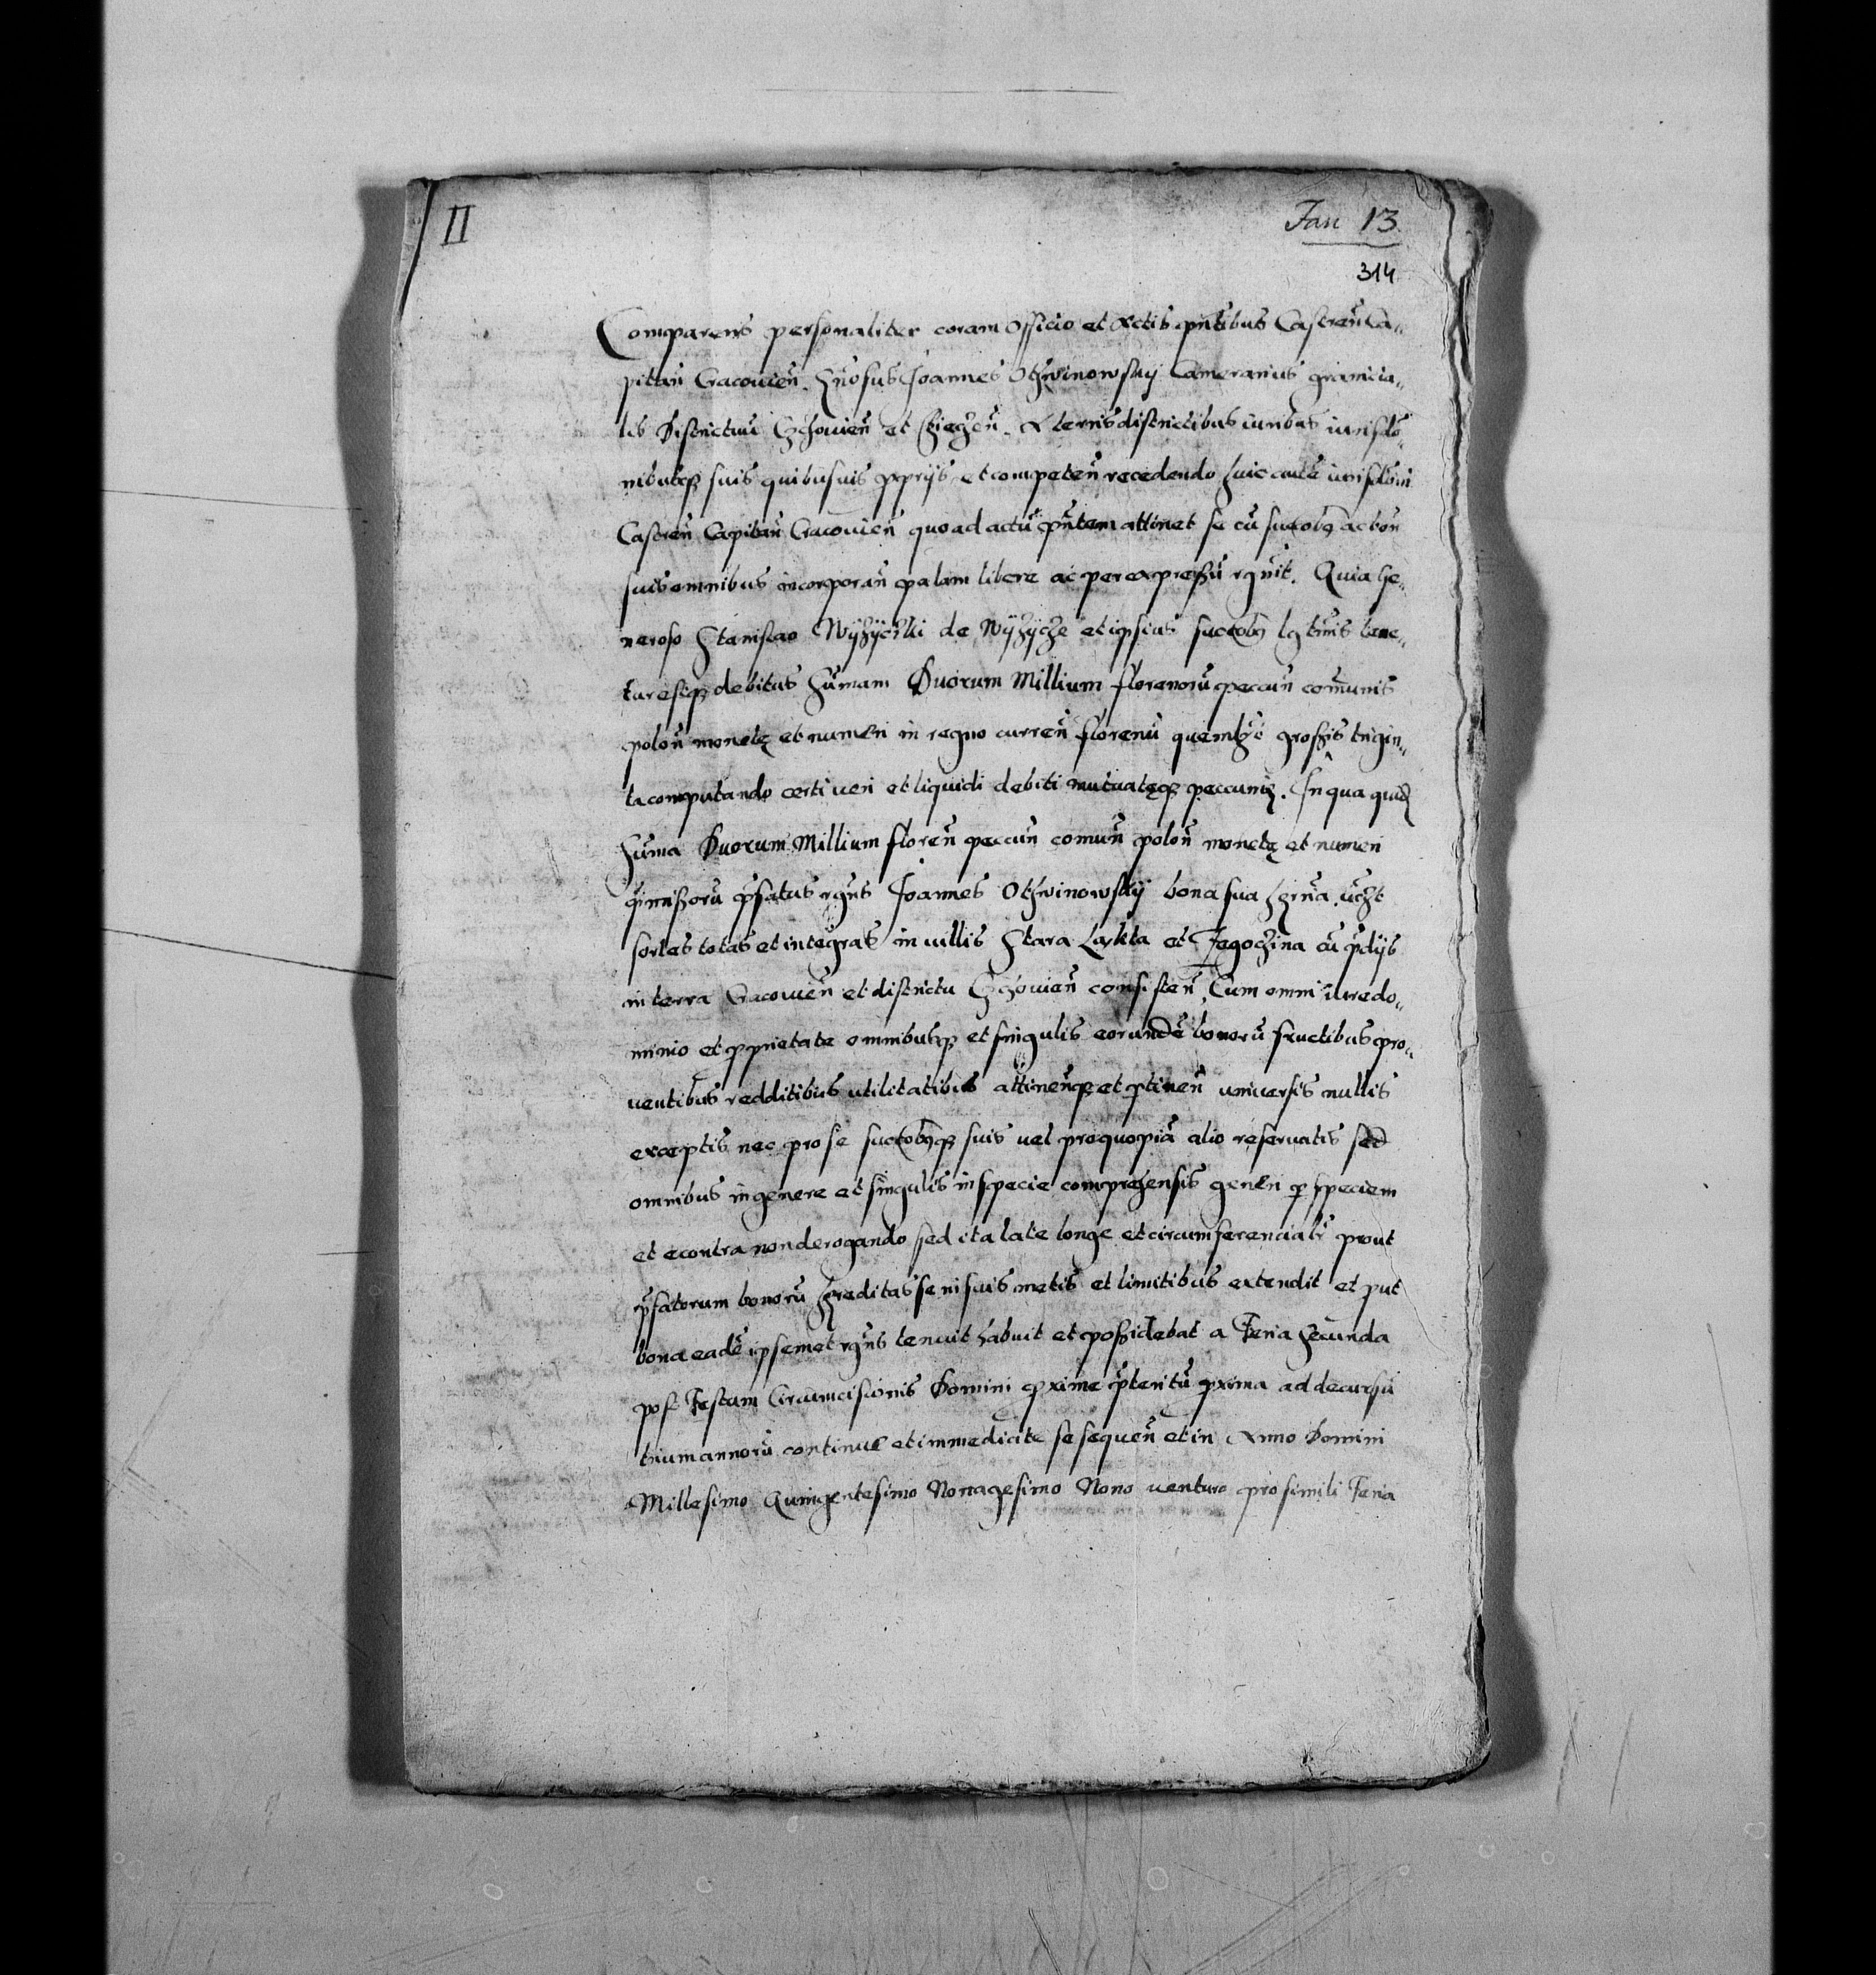 II
Jan 13.
314
Comparens personaliter coram officio et Actis pntibus Castren̄ Ca„
pitan̄ Cracouien̄. Gn̄osus Joannes Othwinowskÿ Camerarius granicia„
lis Districtuū Cżchouien̄ et Biegen̄. A terris districtibus iuribus iurisdō„
nibusq3 suis quibusuis pprijs et competen̄ recedendo huic autē iurisdōni
Castren̄ Capitan̄ Cracouien̄ quoad actū pn̄tem attinet se cū suctob9 ac bon̄
suis omnibus incorporan̄ palam libere ac per expressū rgnūit. Quia Ge„
neroso Stanislao Wÿżÿczki de Wÿżÿcże et ipsius suctob9 lgtmis tene„
tur estq3 debitus Sum̄am Duorum Millium florenorū peccun̄ com̄unis
polon̄ monetę et numeri in regno curren̄ florenū quemlżt grossis trigin„
ta computando certi ueri et liquidi debiti mutuatęq3 peccunię. In qua quid3
Sum̄a Duorum Millium floren̄ peccun̄ comun̄ polon̄ monetę et numeri
pmissorū pfatus rgn̄s Joannes Othwinowskÿ bona sua hrn̄a. uczt
sortes totas et integras in uillis Stara Laykta et Jagodzina cū pdijs
in terra Cracouien̄ et districtu Cżchouien̄ consisten̄ Cum omni iure do„
minio et pprietate omnibusq3 et singulis eorundē bonorū fructibus pro„
uentibus redditibus utilitatibus attinen̄q3 et ptinen̄ uniuersis nullis
exceptis nec pro se suctob9q3 suis uel pro quopiā alio reseruatis sed
omnibus in genere et singulis in specie comprehensis genēn p speciem
et econtra non derogando sed ita late longe et circumferencialr prout
pfatorum bonorū hęreditas se in suis metis et limitibus extendit et put
bona eadē ipsemet rgn̄s tenuit habuit et possidebat a Feria Secunda
post Festum Circumcisionis Domini pxime pteritū pxima ad decursū
trium annorū continuę et immediate se sequen̄ et in Anno Domini
Millesimo Quingentesimo Nonagesimo Nono uenturo pro simili Feria